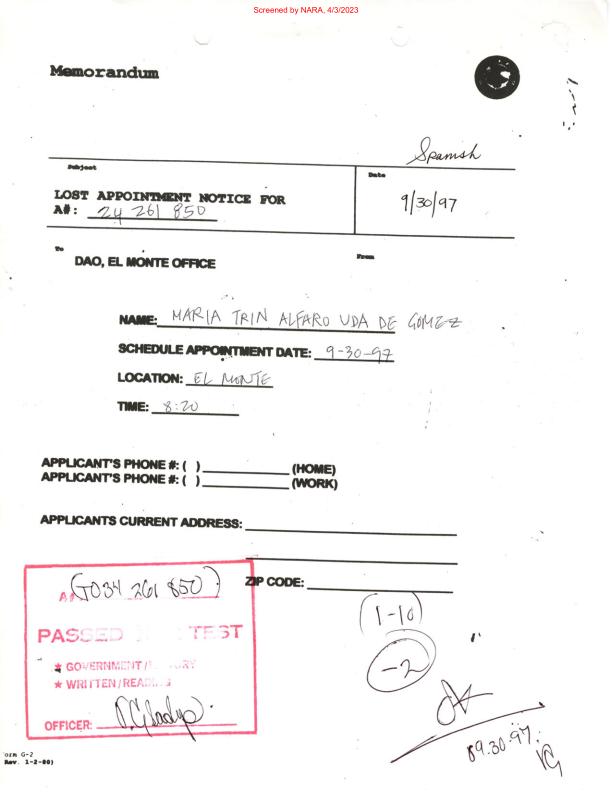 Screened by NARA, 4/3/2023
Memorandum
Spanish
Subject
Date
LOST APPOINTMENT NOTICE FOR
A#: 24 261 850
9/30/97
To
From
DAO, EL MONTE OFFICE
NAME: MARIA TRIN ALFARO UDA DE GOMEZ
SCHEDULE APPOINTMENT DATE: 9-30-97
LOCATION: EL MONTE
TIME: 8:20
APPLICANT'S PHONE #: ( ) (HOME)
APPLICANT'S PHONE #: ( ) (WORK)
APPLICANTS CURRENT ADDRESS:
ZIP CODE:
261 850)
PASSED TEST
* GOVERNMENT/
* WRITTEN/
OFFICER:
(1-10)
-2
OK
09.30.97.
orm G-2
Rev. 1-2-80)